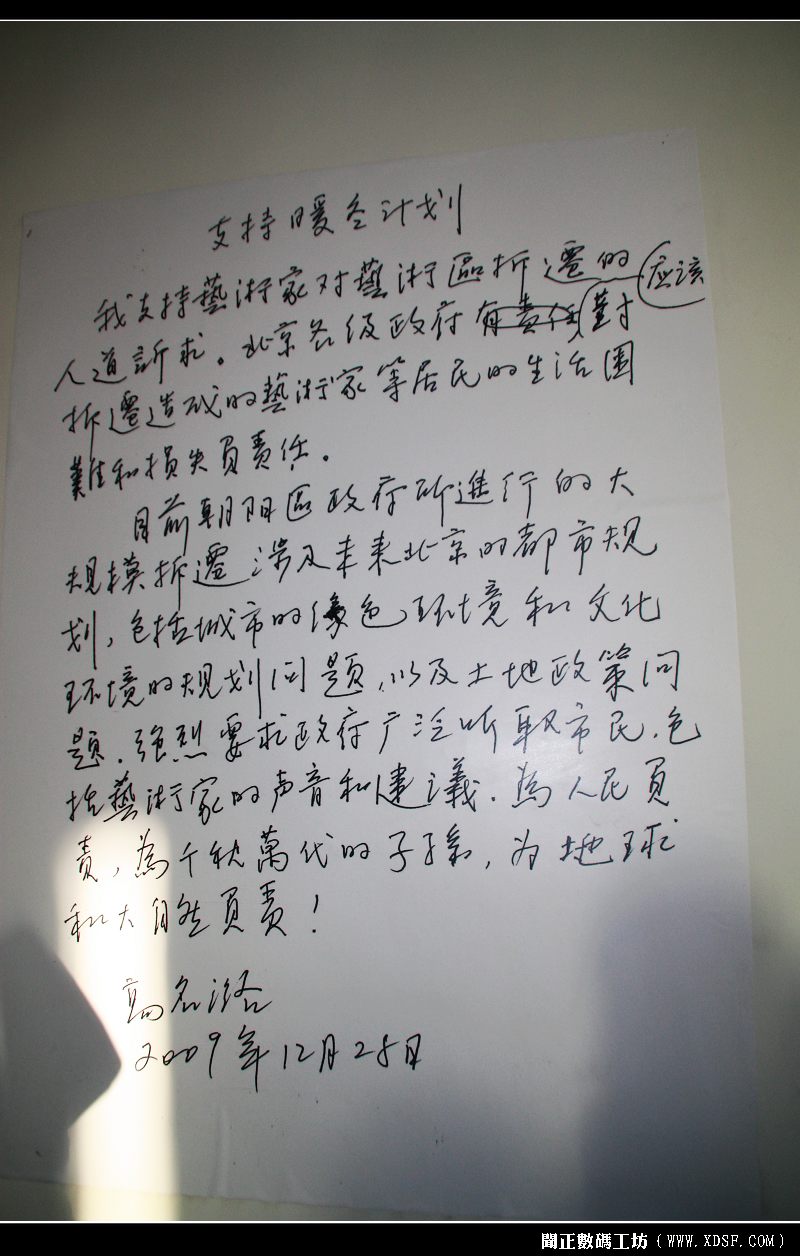 支持暖冬计划
我支持藝術家对藝術區拆遷的
人道訴求。北京各级政府有責任應该對
拆遷造成的藝術家等居民的生活困
難和损失負責任。
目前朝阳區政府所進行的大
規模拆遷涉及未来北京的都市规
划，包括城市的绿色环境和文化
环境的规划问题，以及土地政策问
题。强烈要求政府广泛听取市民，包
括藝術家的声音和建議。為人民負
责，為千秋萬代的子孫，为地球
和大自然負责！
高名潞
2009年12月25日
聞正數碼工坊（WWW.XDSF.COM）